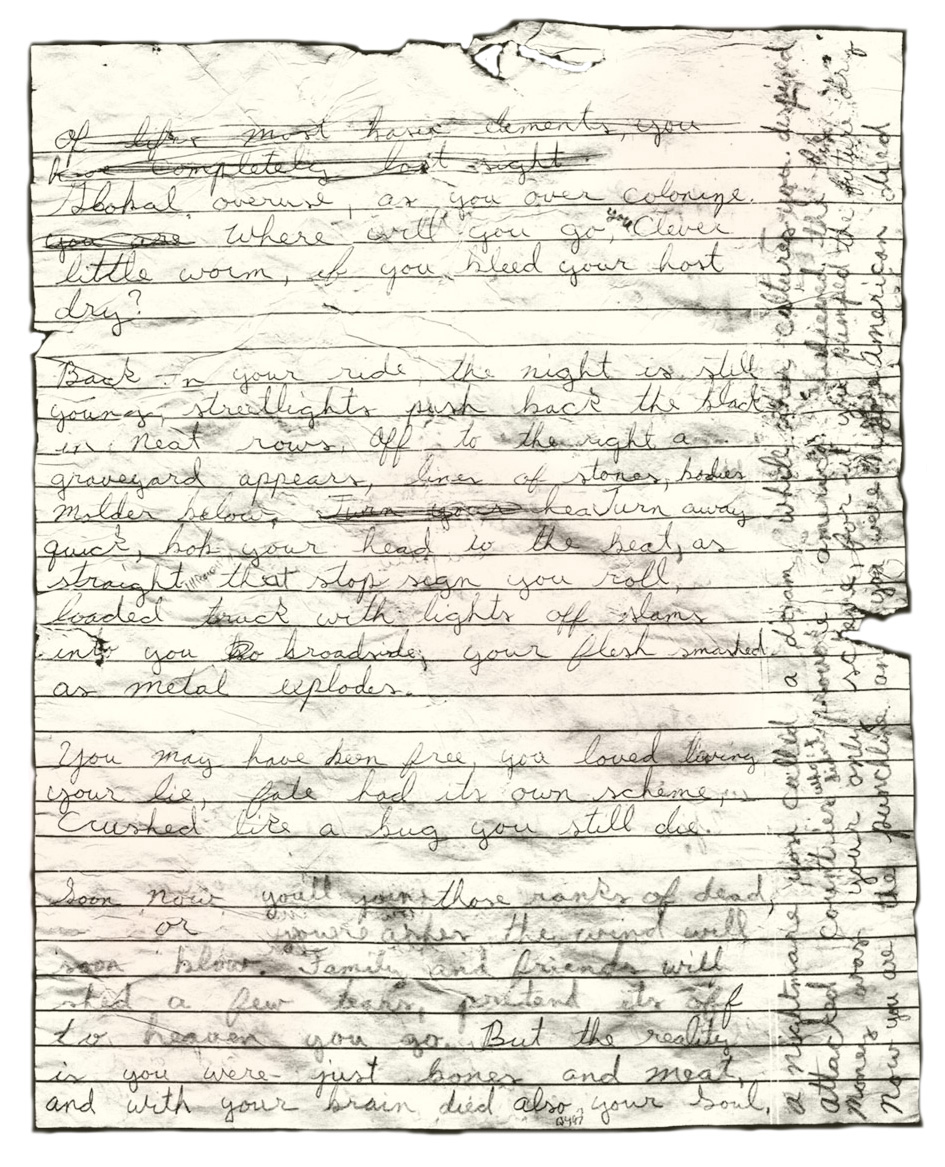 Of lifes most basic elements, you
have completely lost sight.
Global overuse, as you over colonize.
you are Where will you go, you Clever
little worm, if you bleed your host
dry?
Back in your ride, the night is still
young, streetlights push back the black
in neat rows. Off to the right a
graveyard appears, lines of stones, bodies
molder below. Turn your hea Turn away
quick, bob your head to the beat, as
straight that stop sign you roll,
loaded truck with lights off slams
into you broadside, your flesh smashed
as metal explodes.
You may have been free, you loved living
your lie, fate had its own scheme,
Crushed like a bug you still die.
Soon now you'll join those ranks of dead,
or your ashes the wind will
soon blow. Family and friends will
shed a few tears, pretend its off
to heaven you go. But the reality
is you were just bones and meat,
and with your brain died also your soul.
a nightmare you called a dream, while other cultures you despised
attacked countries that provoke animous, sickened the
money was your only score, for oil you pumped the future dry
Now you are the punchline and you were American dead